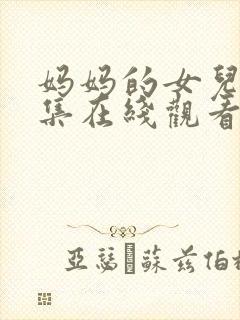 妈妈的女兒
集在綫觀看
亞瑟·蘇茲伯